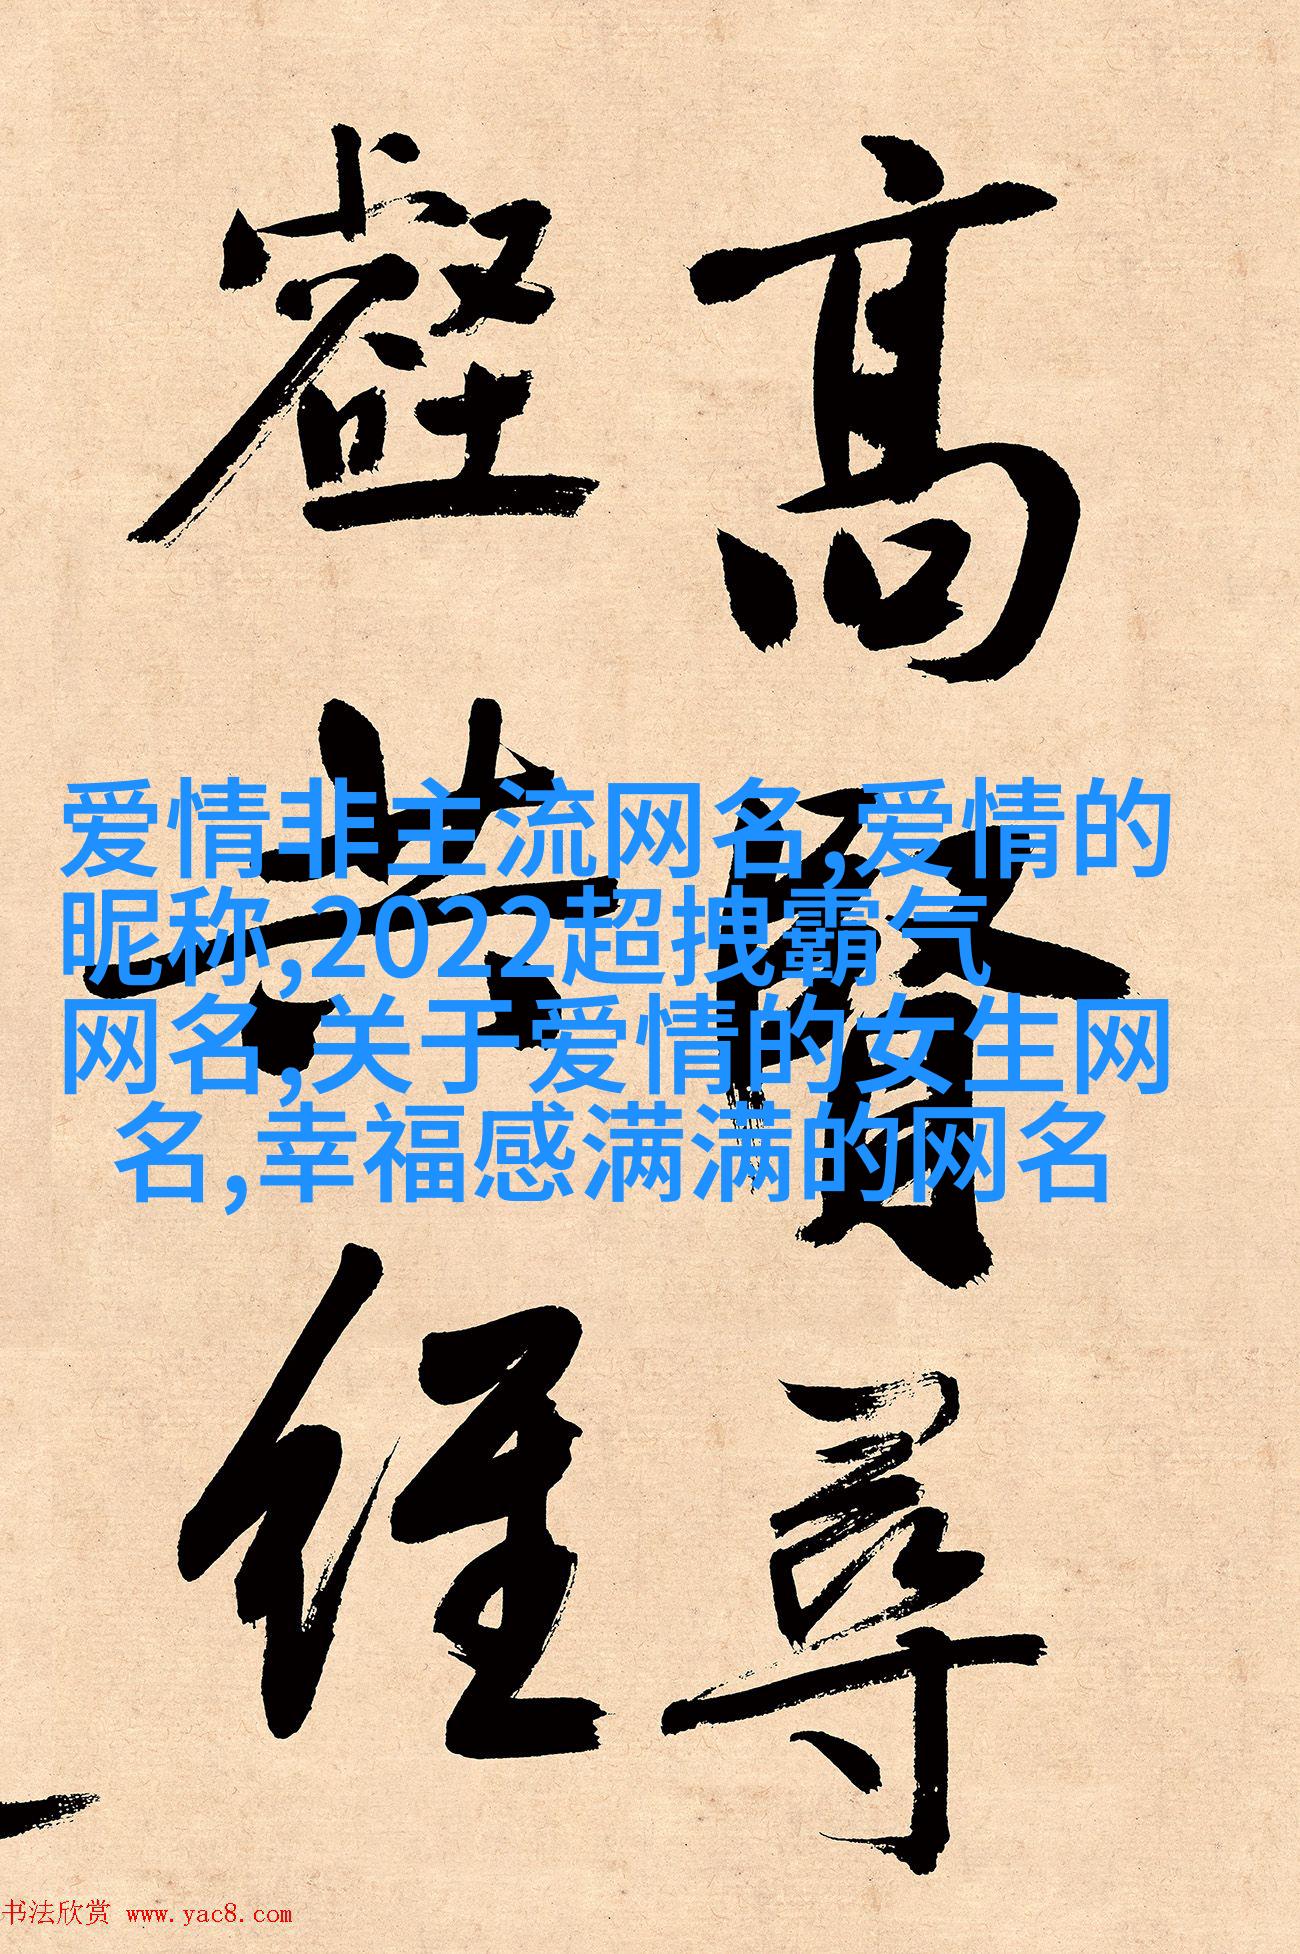 高賢尋
壑共經
爱情非主流网名,爱情的
昵称,2022超拽霸气
网名,关于爱情的女生网
名,幸福感满满的网名
书法欣赏 www.yac8.com